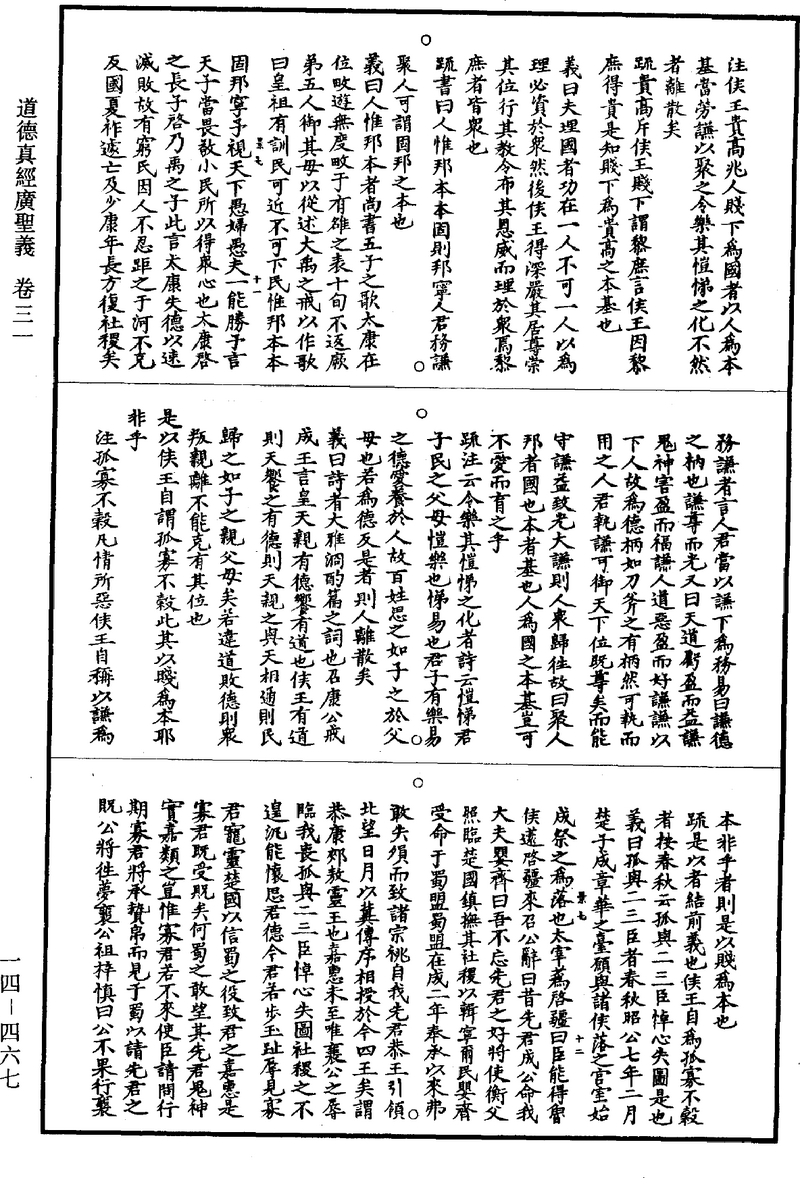 道德真經廣聖義　卷三一
一四－四六七
注侯王貴高兆人賤下為國者以人為本
基當勞謙以聚之令樂其愷悌之化不然
者離散矣
疏貴高斥侯王賤下謂黎庶言侯王因黎
庶得貴是知賤下為貴高之本基也
義曰夫理國者功在一人不可一人以為
理必資於眾然後侯王得深嚴其居尊崇
其位行其教令布其恩威而理於眾焉黎
庶者皆眾也
疏書曰人惟邦本本固則邦寧人君務謙
聚人可謂固邦之本也
義曰人惟邦本者尚書五子之歌太康在
位畋遊無度畋于有雒之表十旬不返厥
弟五人御其母以從述大禹之戒以作歌
曰皇祖有訓民可近不可下民惟邦本本
固邦寧予視天下愚婦愚夫一能勝予言
天子當畏敬小民所以得眾心也太康啓
之長子啓乃禹之子此言太康失德以速
滅敗故有窮氏因人不忍距之于河不克
反國夏祚遽亡及少康年長方復社稷矣
務謙者言人君當以謙下為務易曰謙德
之柄也謙尊而光又曰天道虧盈而益謙
鬼神害盈而福謙人道惡盈而好謙謙以
下人故為德柄如刀斧之有柄然可執而
用之人君執謙可御天下位既尊矣而能
守謙益致光大謙則人衆歸往故曰聚人
邦者國也本者基也人為國之本基豈可
不愛而育之乎
疏注云令樂其愷悌之化者詩云愷悌君
子民之父母愷樂也悌易也君子有樂易
之德愛養於人故百姓思之如子之於父
母也若為德反是者則人離散矣
義曰詩者大雅泂酌篇之詞也召康公戒
成王言皇天親有德饗有道也侯王有道
則天饗之有德則天親之與天相通則民
歸之如子之親父母矣若違道敗德則衆
叛親離不能克有其位也
是以侯王自謂孤寡不穀此其以賤為本耶
非乎
注孤寡不穀凡情所惡侯王自稱以謙為
本非乎者則是以賤為本也
疏是以者結前義也侯王自為孤寡不穀
者按春秋云孤與二三臣悼心失圖是也
義曰孤與二三臣者春秋昭公七年二月
楚子成章華之臺願與諸侯落之宮室始
成祭之為落也太宰薳啓疆曰臣能得魯
侯薳啓疆來召公辭曰昔先君成公命我
大夫嬰齊曰吾不忘先君之好將使衡父
照臨楚國鎮撫其社稷以輯寧爾民嬰齊
受命于蜀盟蜀盟在成二年奉承以來弗
敢失隕而致諸宗祧自我先君恭王引領
北望日月以冀傳序相授於今四王矣謂
恭康郟敖靈王也嘉惠未至唯襄公之辱
臨我喪孤與二三臣悼心失圖社稷之不
遑況能懷思君德今君若步玉趾辱見寡
君寵靈楚國以信蜀之役致君之嘉惠是
寡君既受貺矣何蜀之敢望其先君鬼神
實嘉賴之豈惟寡君君若不來使臣請問行
期寡君將承贄帛而見于蜀以請先君之
貺公將往夢襄公祖梓慎曰公不果行襄